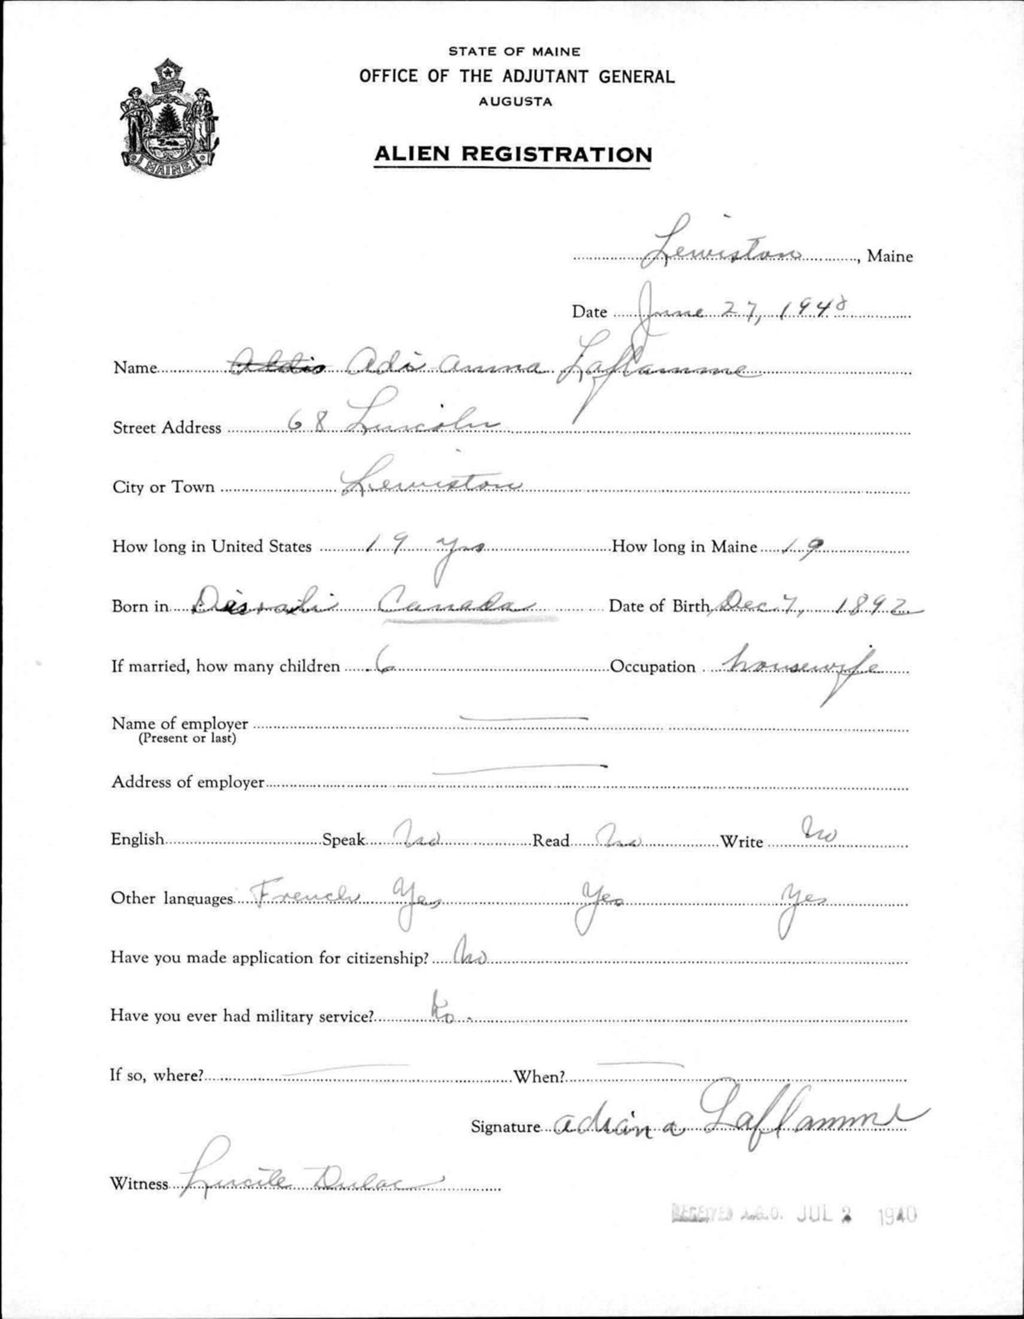 STATE OF MAINE
OFFICE OF THE ADJUTANT GENERAL
AUGUSTA
ALIEN REGISTRATION
MAINE
Lewiston, Maine
Date June 27, 1940
Name Adi anna Laflamme
Street Address 68 Lincoln
City or Town Lewiston
How long in United States 19 yrs How long in Maine 19
Born in Disraeli Canada Date of Birth Dec 7, 1892
If married, how many children 6 Occupation housewife
Name of employer
(Present or last)
Address of employer
English Speak No Read No Write No
Other languages French Yes Yes Yes
Have you made application for citizenship? No
Have you ever had military service? No.
If so, where? When?
Signature adriana Laflamme
Witness Lucile Dulac
RECEIVED A.G.O. JUL 2 1940